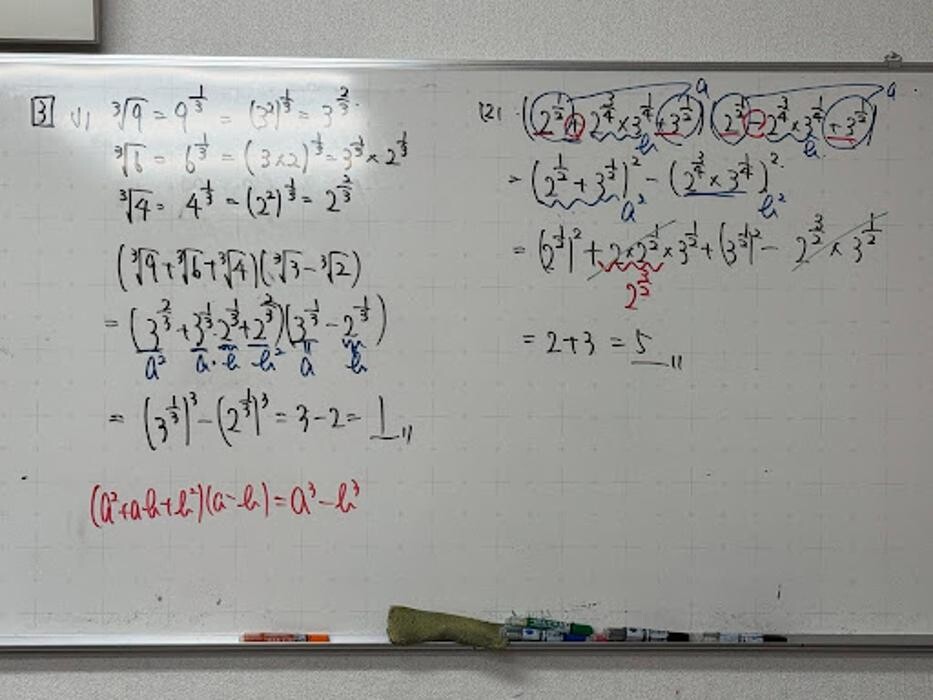 3 (1) ∛9 = 9^{1/3} = (3²)^{1/3} = 3^{2/3}
∛6 = 6^{1/3} = (3×2)^{1/3} = 3^{1/3} × 2^{1/3}
∛4 = 4^{1/3} = (2²)^{1/3} = 2^{2/3}
(∛9+∛6+∛4)(∛3-∛2)
= (3^{2/3} + 3^{1/3}·2^{1/3} + 2^{2/3})(3^{1/3} - 2^{1/3})
a² a·b b² a b
= (3^{1/3})³ - (2^{1/3})³ = 3-2 = 1
(a²+ab+b²)(a-b) = a³-b³
(2) (2^{1/2} + 2^{3/4}×3^{1/4} + 3^{1/2})(2^{1/2} - 2^{3/4}×3^{1/4} + 3^{1/2})
a b a b
= (2^{1/2} + 3^{1/2})² - (2^{3/4} × 3^{1/4})²
a² b²
= (2^{1/2})² + 2×2^{1/2}×3^{1/2} + (3^{1/2})² - 2^{3/2} × 3^{1/2}
2^{3/2}
= 2+3 = 5